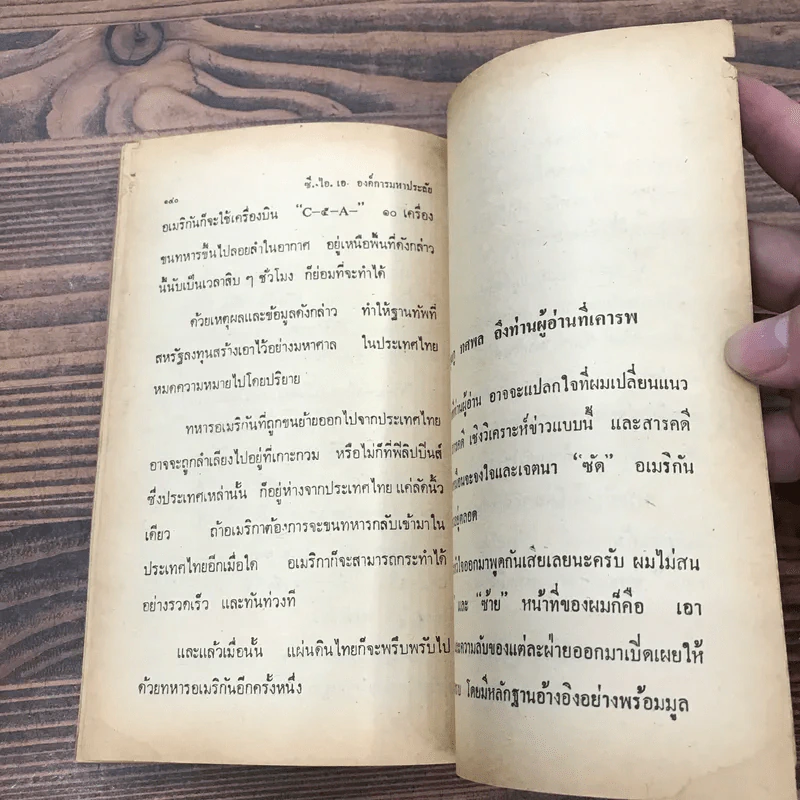 ๑๔๐ ซี. ไอ. เอ. องค์การมหาประลัย
อเมริกันก็จะใช้เครื่องบิน “C–๕–A–” ๑๐ เครื่อง
ขนทหารขึ้นไปลอยลำในอากาศ อยู่เหนือพื้นที่ดังกล่าว
นี้นับเป็นเวลาสิบ ๆ ชั่วโมง ก็ย่อมที่จะทำได้
ด้วยเหตุผลและข้อมูลดังกล่าว ทำให้ฐานทัพที่
สหรัฐลงทุนสร้างเอาไว้อย่างมหาศาล ในประเทศไทย
หมดความหมายไปโดยปริยาย
ทหารอเมริกันที่ถูกขนย้ายออกไปจากประเทศไทย
อาจจะถูกลำเลียงไปอยู่ที่เกาะกวม หรือไม่ก็ที่ฟิลิปปินส์
ซึ่งประเทศเหล่านั้น ก็อยู่ห่างจากประเทศไทย แค่ลัดนิ้ว
เดียว ถ้าอเมริกาต้องการจะขนทหารกลับเข้ามาใน
ประเทศไทยอีกเมื่อใด อเมริกาก็จะสามารถกระทำได้
อย่างรวดเร็ว และทันท่วงที
และแล้วเมื่อนั้น แผ่นดินไทยก็จะพรึบพรับไป
ด้วยทหารอเมริกันอีกครั้งหนึ่ง
ทศพล ถึงท่านผู้อ่านที่เคารพ
ท่านผู้อ่าน อาจจะแปลกใจที่ผมเปลี่ยนแนว
เชิงวิเคราะห์ข่าวแบบนี้ และสารคดี
จะจงใจและเจตนา “ซัด” อเมริกัน
อยู่ตลอด
ออกมาพูดกันเสียเลยนะครับ ผมไม่สน
และ “ซ้าย” หน้าที่ของผมก็คือ เอา
ความลับของแต่ละฝ่ายออกมาเปิดเผยให้
โดยมีหลักฐานอ้างอิงอย่างพร้อมมูล